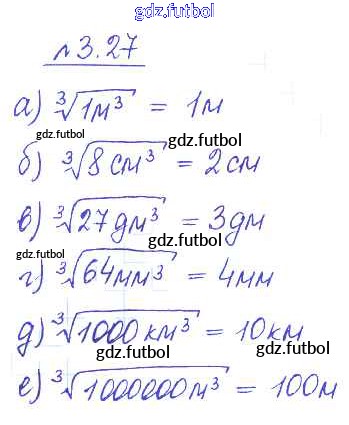 gdz.futbol
№3.27
а) ∛1м³ = 1м
gdz.futbol gdz.futbol
б) ∛8см³ = 2см
в) ∛27дм³ = 3дм
gdz.futbol gdz.futbol
г) ∛64мм³ = 4мм
д) ∛1000км³ = 10км
gdz.futbol gdz.futbol
е) ∛1000000м³ = 100м